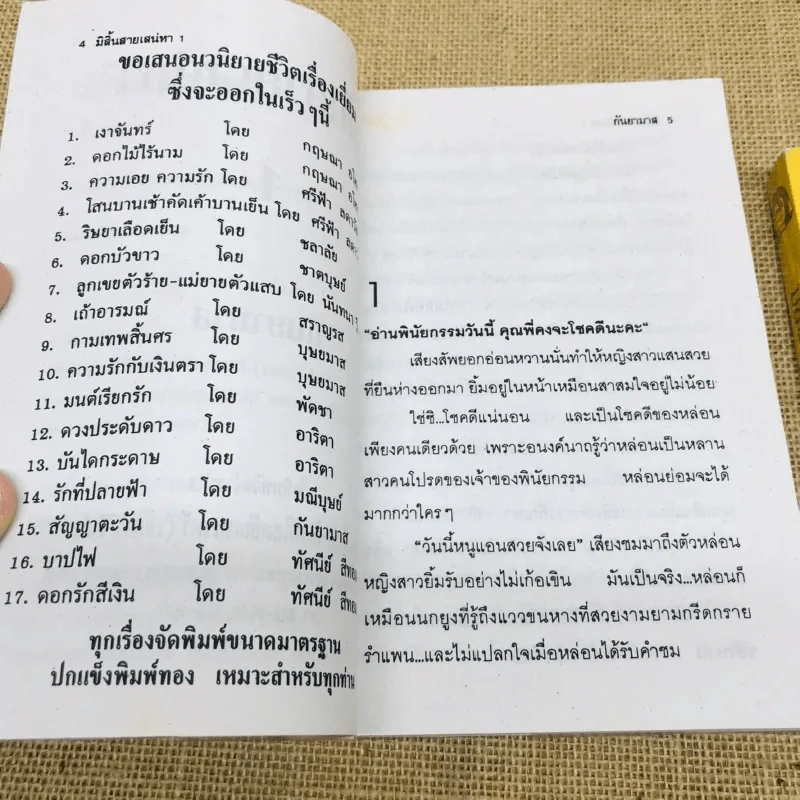 4 มิสิ้นสายเสน่หา 1
ขอเสนอนวนิยายชีวิตเรื่องเยี่ยม
ซึ่งจะออกในเร็ว ๆ นี้
1. เงาจันทร์ โดย กฤษณา
2. ดอกไม้ไร้นาม โดย กฤษณา
3. ความเอย ความรัก โดย ศรีฟ้า
4. โสนบานเช้าคัดเค้าบานเย็น โดย ศรีฟ้า
5. ริษยาเลือดเย็น โดย ชลาลัย
6. ดอกบัวขาว โดย ชาตบุษย์
7. ลูกเขยตัวร้าย-แม่ยายตัวแสบ โดย นันทนา
8. เถ้าอารมณ์ โดย สราญรส
9. กามเทพสิ้นศร โดย บุษยมาส
10. ความรักกับเงินตรา โดย บุษยมาส
11. มนต์เรียกรัก โดย พัดชา
12. ดวงประดับดาว โดย อาริตา
13. บันไดกระดาษ โดย อาริตา
14. รักที่ปลายฟ้า โดย มณีบุษย์
15. สัญญาตะวัน โดย กันยามาส
16. บาปไฟ โดย ทัศนีย์
17. ดอกรักสีเงิน โดย ทัศนีย์
ทุกเรื่องจัดพิมพ์ขนาดมาตรฐาน
ปกแข็งพิมพ์ทอง เหมาะสำหรับทุกท่าน
กันยามาส 5
1
"อ่านพินัยกรรมวันนี้ คุณพี่คงจะโชคดีนะคะ"
เสียงสัพยอกอ่อนหวานนั่นทำให้หญิงสาวแสนสวย
ที่ยืนห่างออกมา ยิ้มอยู่ในหน้าเหมือนสาสมใจอยู่ไม่น้อย
ใช่ซิ...โชคดีแน่นอน และเป็นโชคดีของหล่อน
เพียงคนเดียวด้วย เพราะอนงค์นาถรู้ว่าหล่อนเป็นหลาน
สาวคนโปรดของเจ้าของพินัยกรรม หล่อนย่อมจะได้
มากกว่าใคร ๆ
"วันนี้หนูแอนสวยจังเลย" เสียงชมมาถึงตัวหล่อน
หญิงสาวยิ้มรับอย่างไม่เก้อเขิน มันเป็นจริง...หล่อนก็
เหมือนนกยูงที่รู้ถึงแววขนหางที่สวยงามยามกรีดกราย
รำแพน...และไม่แปลกใจเมื่อหล่อนได้รับคำชม